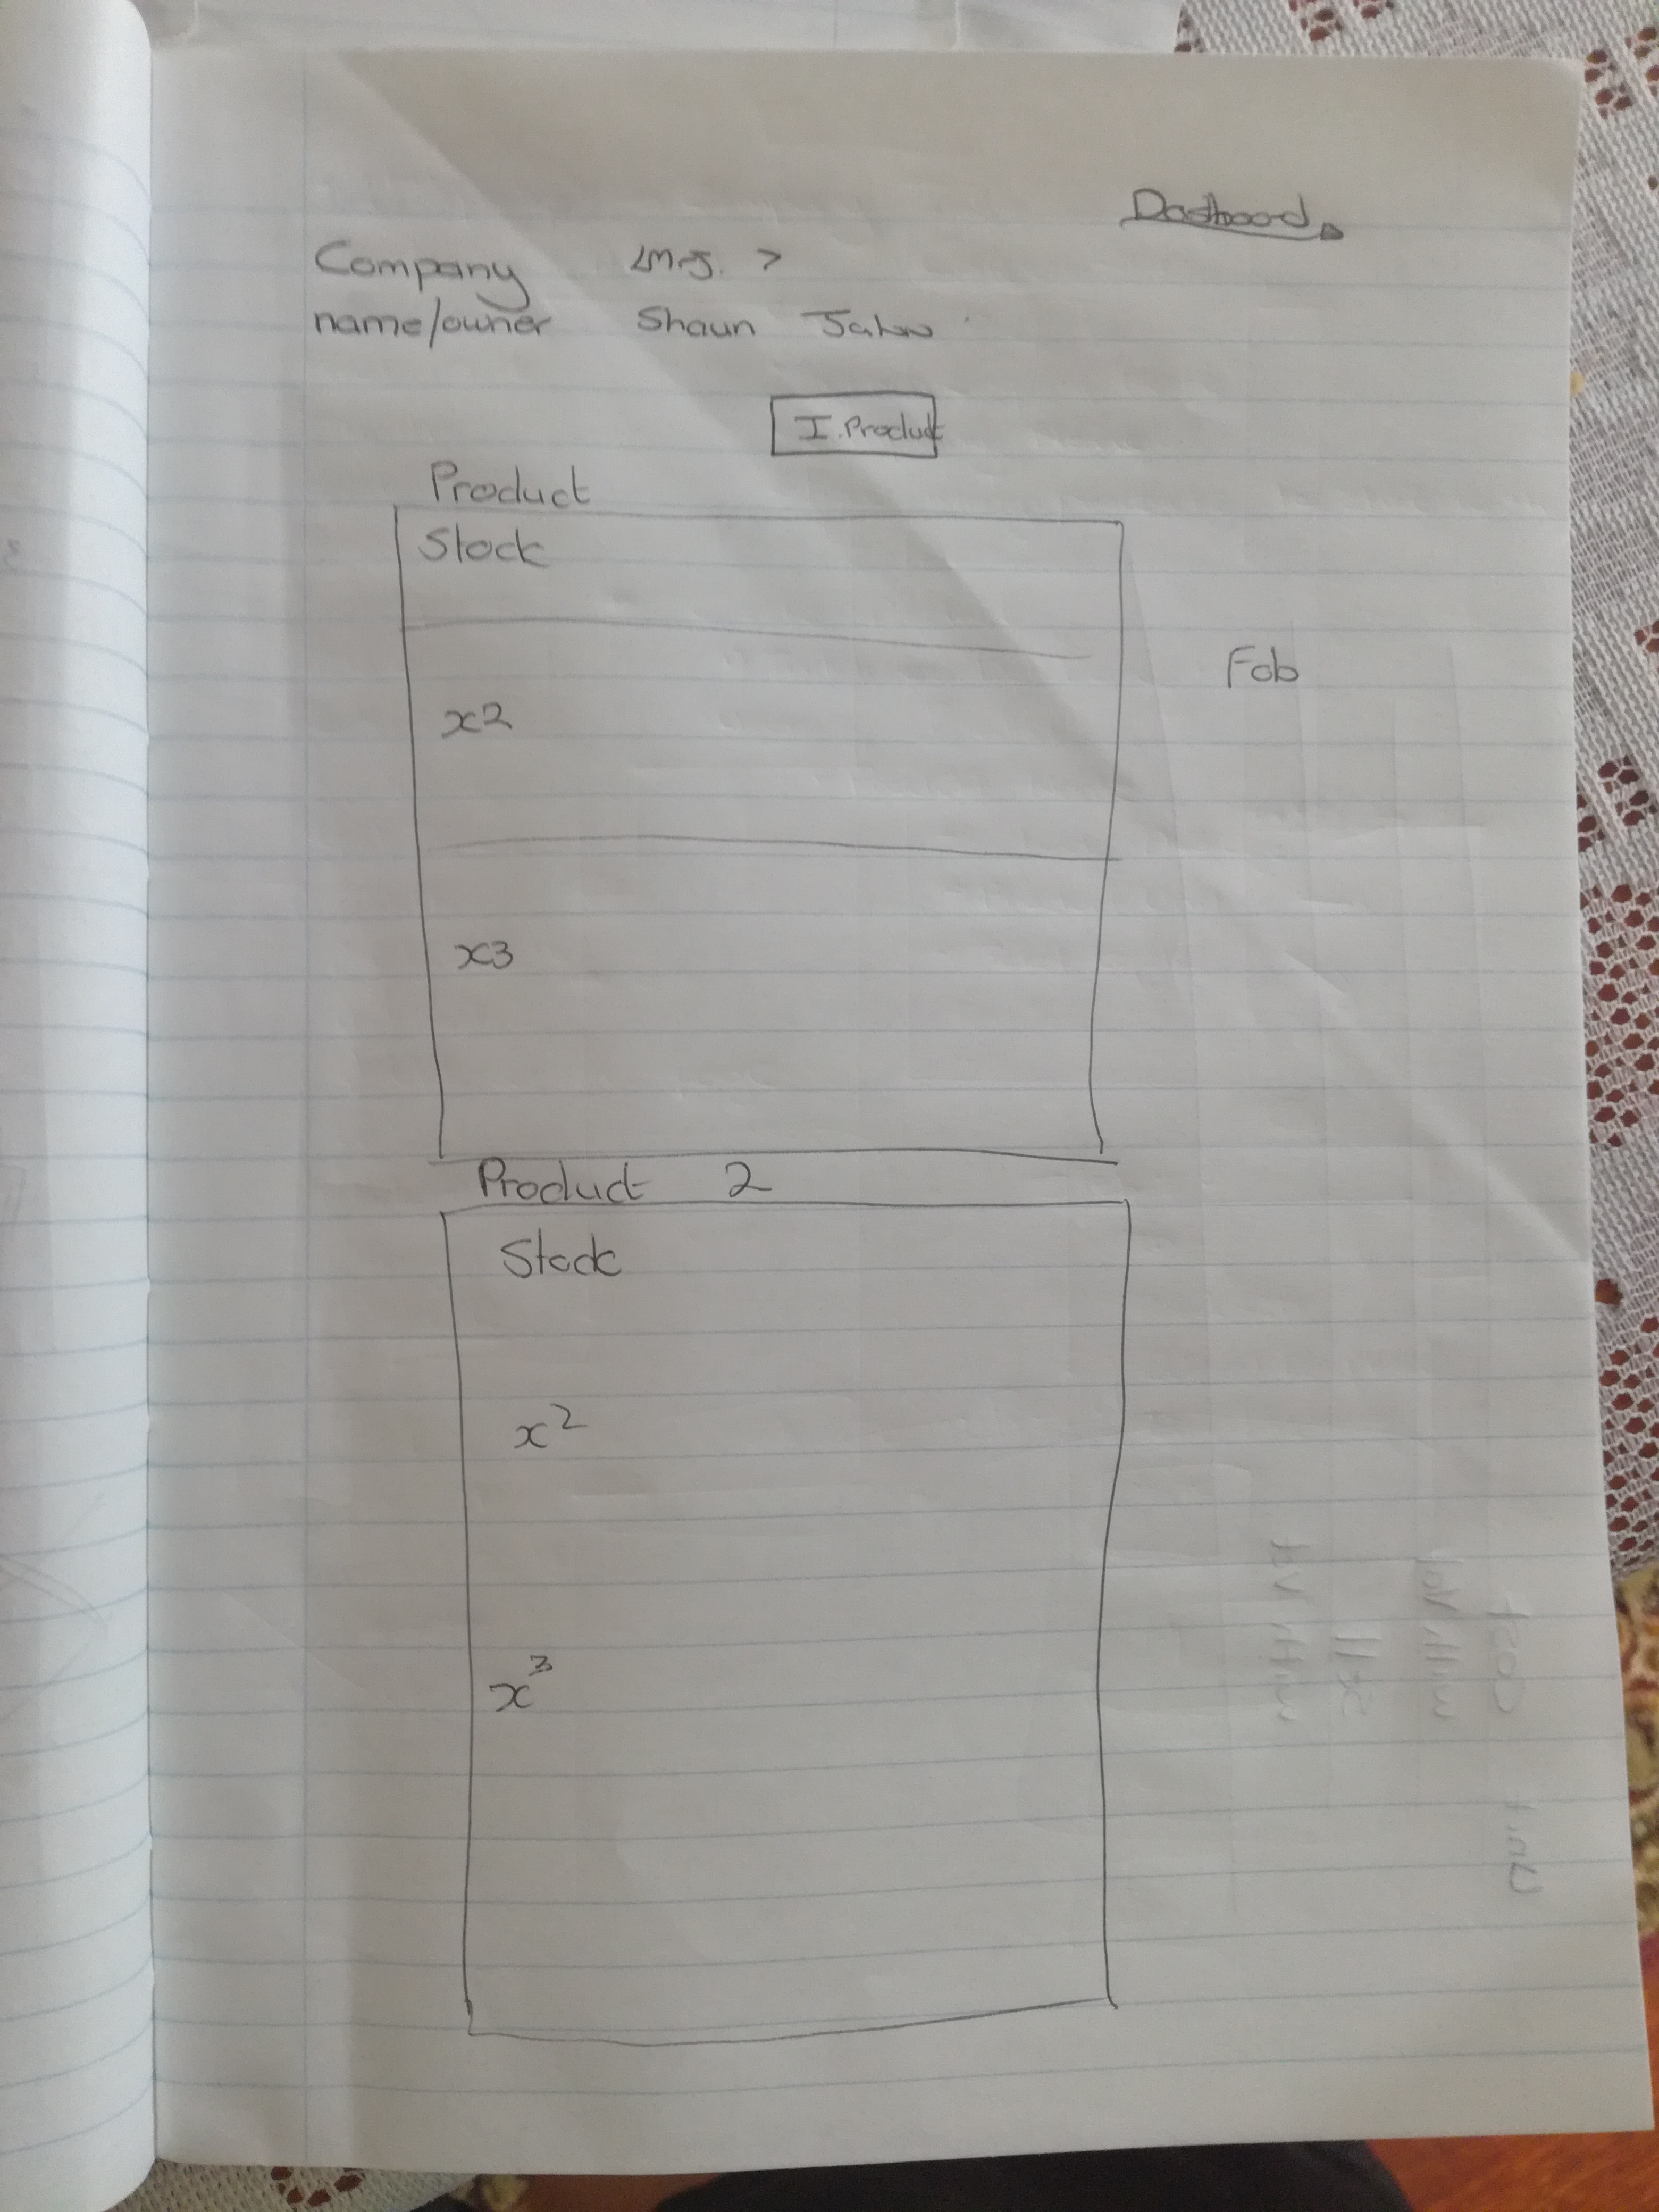 Dashboard
Company
name/owner Shaun
I. Product
Product
Stock
Fob
x2
x3
Product 2
Stock
x²
x³